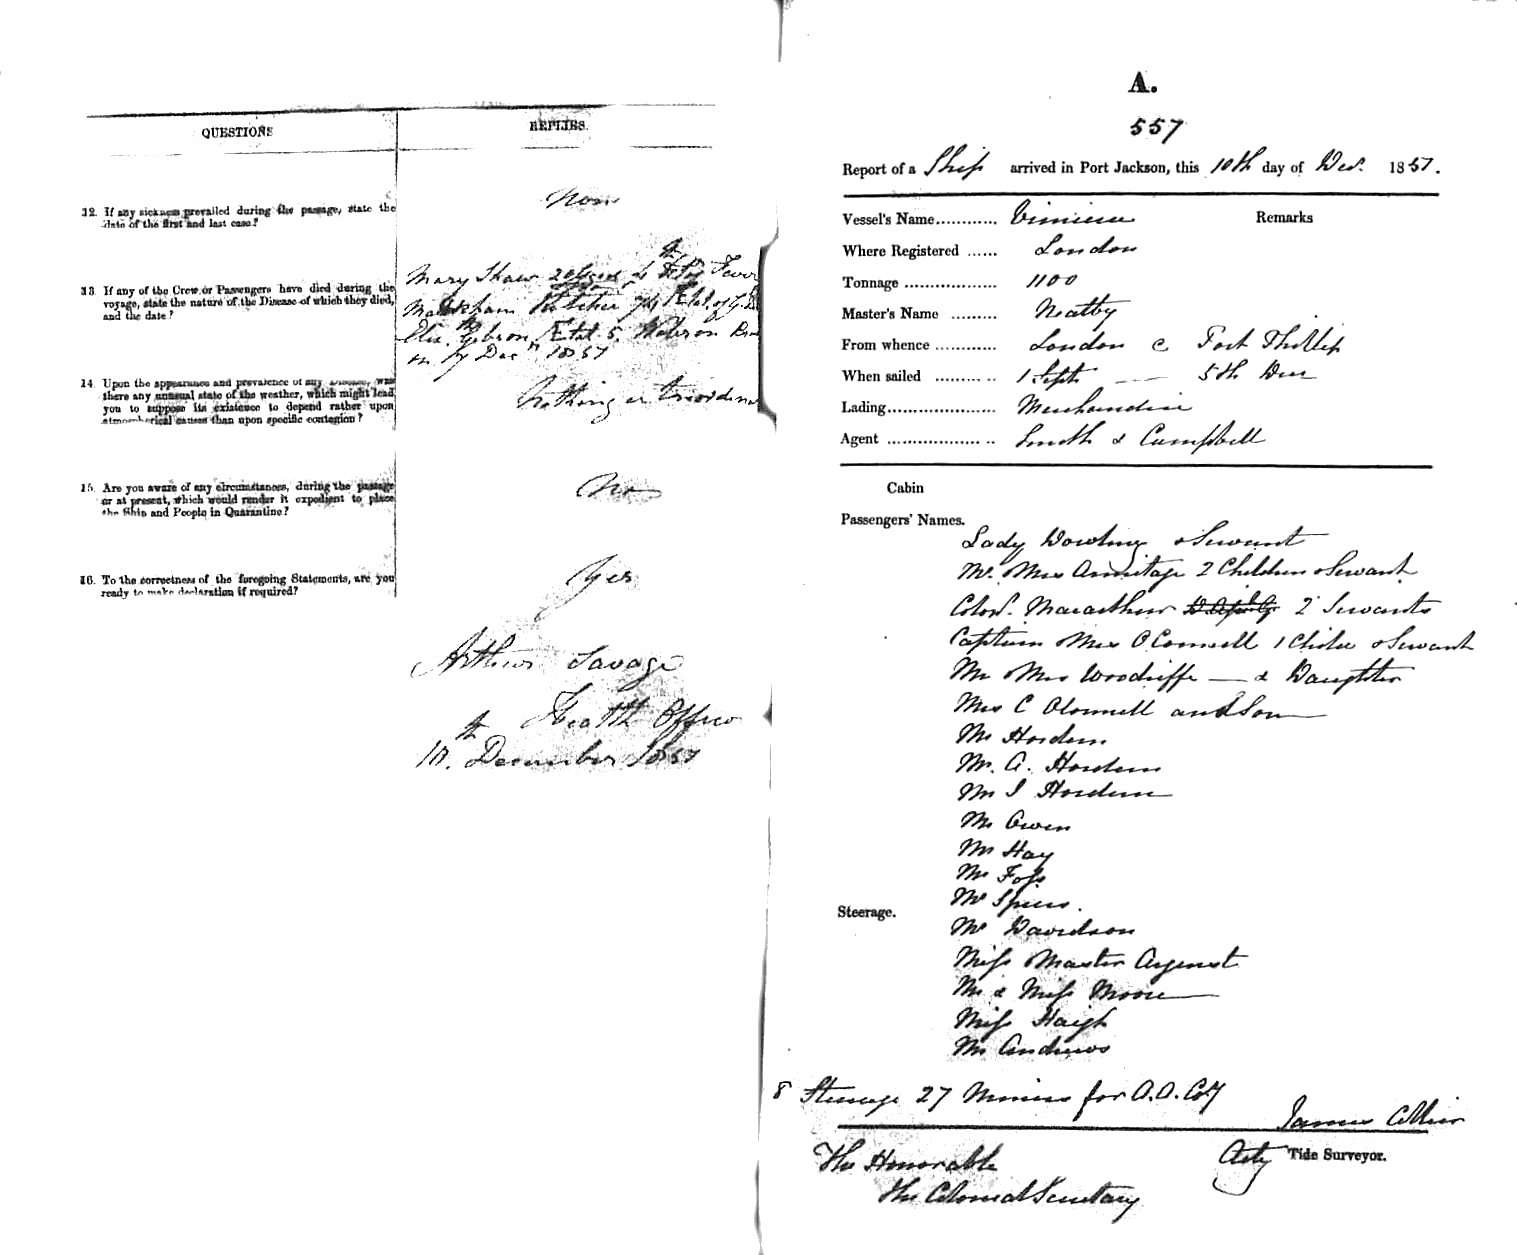 QUESTIONS
REPLIES.
12. If any sickness prevailed during the passage, state the
date of the first and last case?
None
13. If any of the Crew or Passengers have died during the
voyage, state the nature of the Disease of which they died,
and the date?
Mary Shaw
Fever
Markham Fletcher
Eliz. Gibson, Etat 5,
on 7th Decr 1857
14. Upon the appearance and prevalence of any Disease, was
there any unusual state of the weather, which might lead
you to suppose its existence to depend rather upon
atmospherical causes than upon specific contagion?
Nothing
15. Are you aware of any circumstances, during the passage
or at present, which would render it expedient to place
the Ship and People in Quarantine?
No
16. To the correctness of the foregoing Statements, are you
ready to make declaration if required?
Yes
Arthur Savage
Health Officer
10th December 1857
A.
557
Report of a Ship arrived in Port Jackson, this 10th day of Dec. 1857.
Vessel's Name............ Vimiera Remarks
Where Registered ...... London
Tonnage ................... 1100
Master's Name ......... Neatby
From whence ............ London & Port Phillip
When sailed ......... .. 1 Sept —— 5th Decr
Lading...................... Merchandise
Agent ................... .. Smith & Campbell
Cabin
Passengers' Names.
Lady Dowling & Servant
Mr. & Mrs Armitage 2 Children & Servant
Colonl. Macarthur 2 Servants
Captain & Mrs O'Connell 1 Child & Servant
Mr & Mrs Woodriffe —— & Daughter
Mrs C OConnell and Son
Mr Hordern
Mr. A. Hordern
Mr I Hordern
Mr Owen
Mr Hay
Mr Foss
Mr Spiers.
Steerage.
Mr Davidson
Miss & Master Argent
Mr & Miss Moore
Miss Haigh
Mr Andrews
8 Steerage 27 Miners for A.A. Coy
James Collier
Actg Tide Surveyor.
The Honorable
The Colonial Secretary